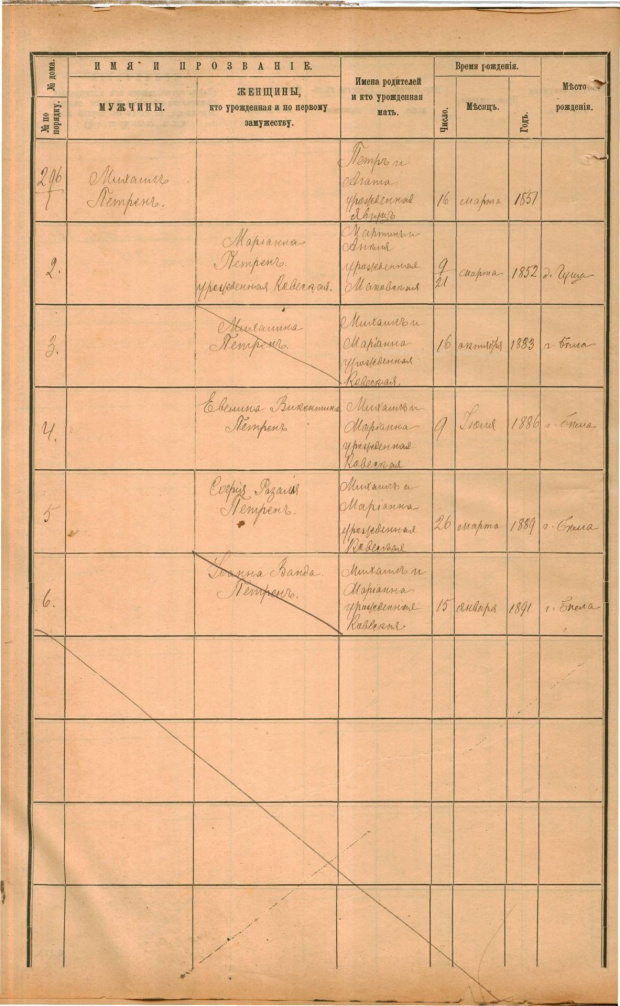 № дома.
№ по порядку.
ИМЯ И ПРОЗВАНІЕ.
МУЖЧИНЫ.
ЖЕНЩИНЫ,
кто урожденная и по первому
замужеству.
Имена родителей
и кто урожденная
мать.
Время рожденія.
Число.
Мѣсяцъ.
Годъ.
Мѣсто
рожденія.
296
1
Михаилъ
Петренъ.
Петръ и
Агата
урожденная
16 марта 1851
2.
Маріанна
Петренъ
урожденная Кавеская.
и
урожденная
Маковская
9
21
марта 1852 д. Гуща
3.
Михалина
Петренъ
Михаилъ и
Маріанна
урожденная
Кавеская.
16 октября 1883 г. Бѣла
4.
Евелина Викентина
Петренъ
Михаилъ и
Маріанна
урожденная
Кавеская
9 Іюля 1886 г. Бѣла
5
Софія Розалія
Петренъ.
Михаилъ и
Маріанна
урожденная
Кавеская
26 марта 1889 г. Бѣла
6.
Іоанна Ванда
Петренъ.
Михаилъ и
Маріанна
урожденная
Кавеская
15 января 1891 г. Бѣла